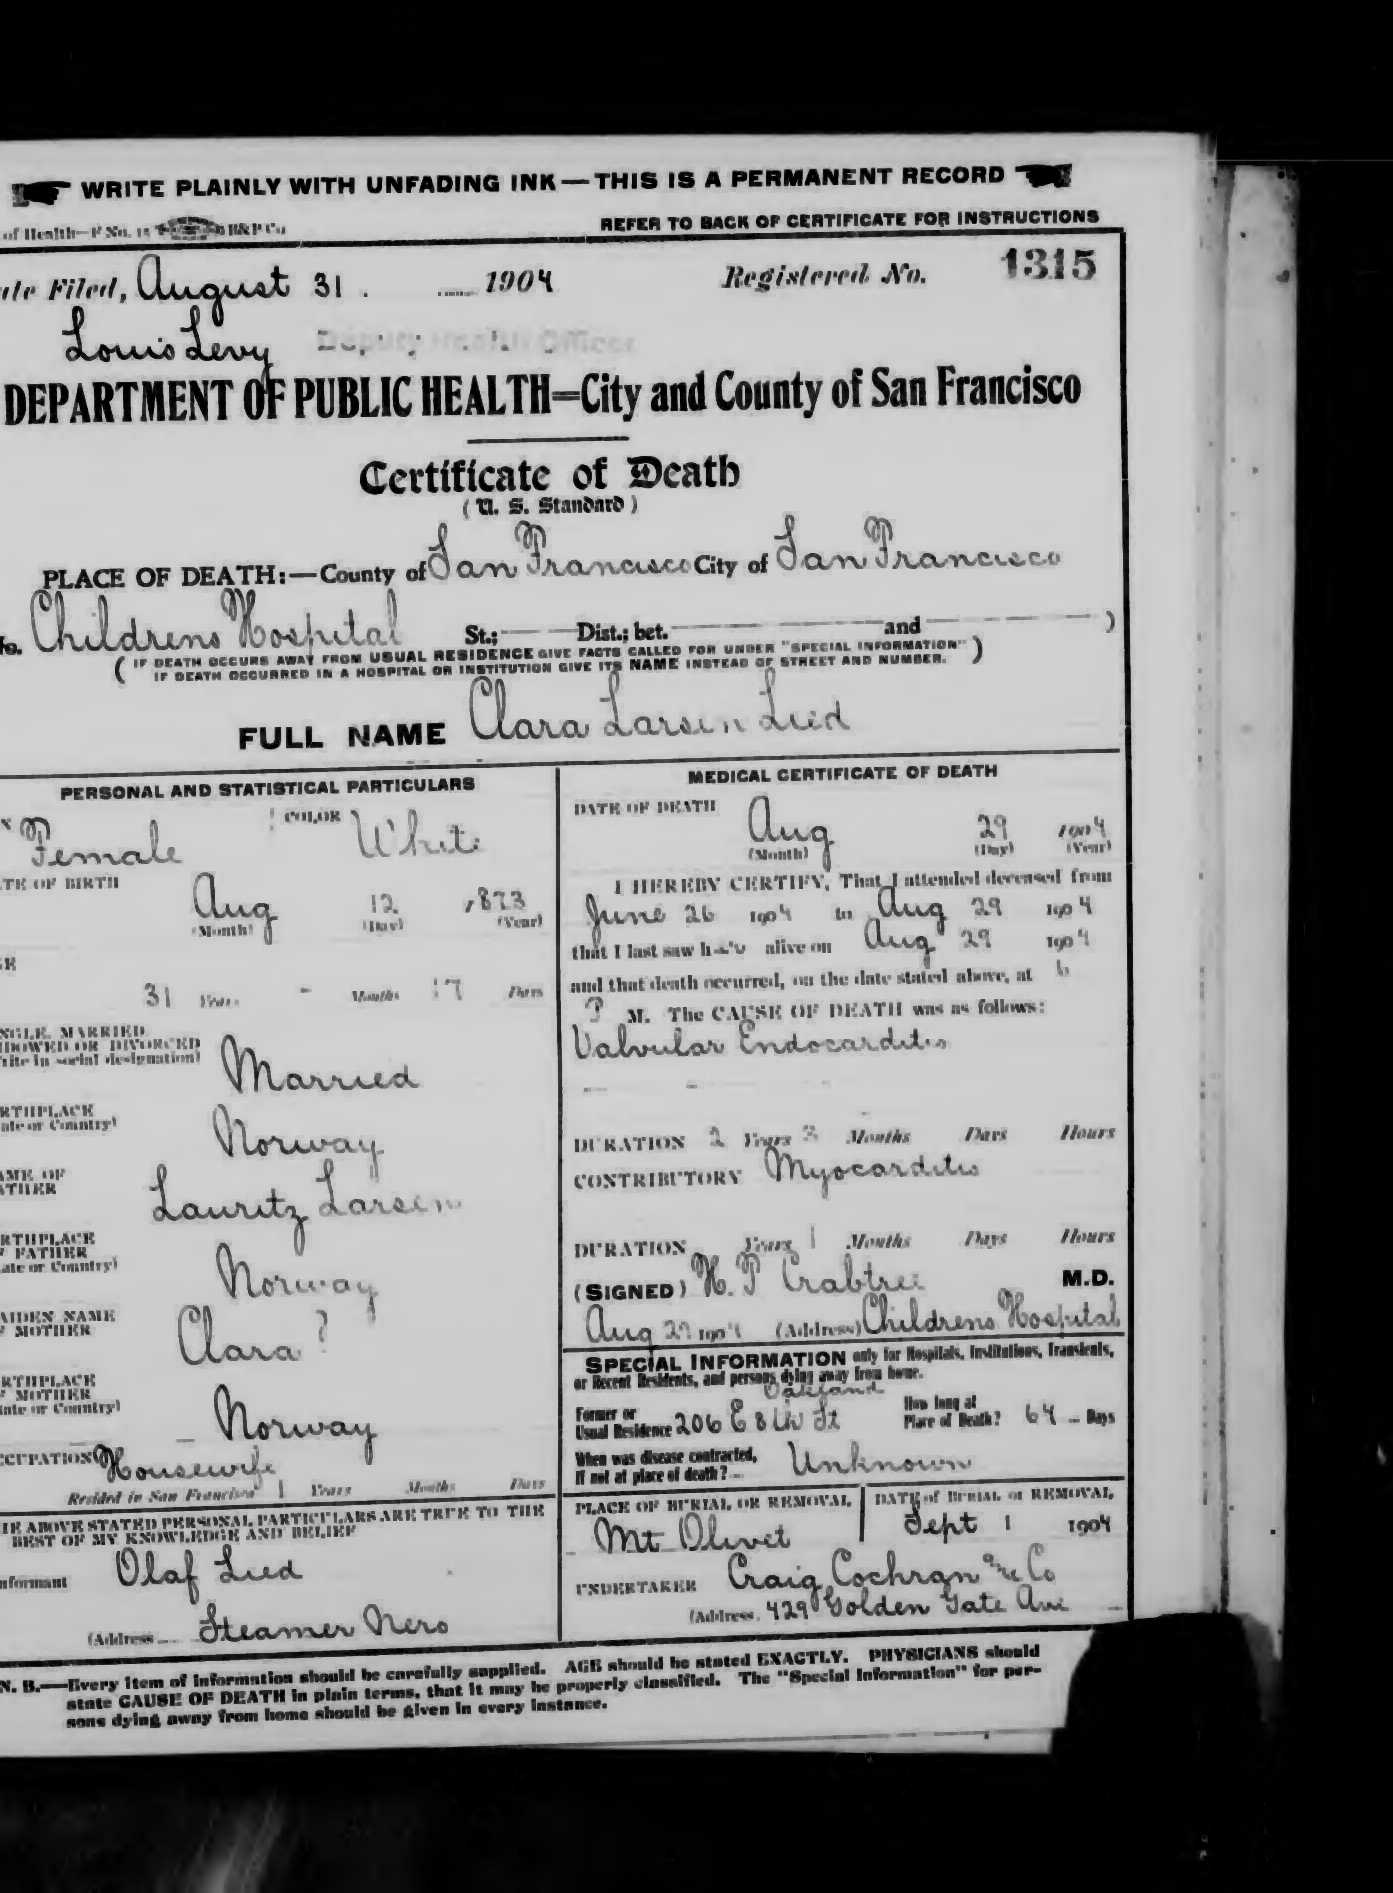 WRITE PLAINLY WITH UNFADING INK—THIS IS A PERMANENT RECORD
of Health—F No. 15 B&P Co
REFER TO BACK OF CERTIFICATE FOR INSTRUCTIONS
ate Filed, August 31. 1904 Registered No. 1315
Louis Levy Deputy Health Officer
DEPARTMENT OF PUBLIC HEALTH=City and County of San Francisco
Certificate of Death
(U. S. Standard)
PLACE OF DEATH:—County of San Francisco City of San Francisco
No. Childrens Hospital St.; Dist.; bet. and )
( IF DEATH OCCURS AWAY FROM USUAL RESIDENCE GIVE FACTS CALLED FOR UNDER "SPECIAL INFORMATION" )
IF DEATH OCCURRED IN A HOSPITAL OR INSTITUTION GIVE ITS NAME INSTEAD OF STREET AND NUMBER.
FULL NAME Clara Larsen Lied
PERSONAL AND STATISTICAL PARTICULARS
X Female COLOR White
TE OF BIRTH
Aug 12 1873
(Month) (Day) (Year)
GE
31 Years - Months 17 Days
NGLE, MARRIED,
IDOWED OR DIVORCED
rite in social designation)
Married
RTHPLACE
ate or Country)
Norway
AME OF
ATHER
Lauritz Larsen
RTHPLACE
F FATHER
ate or Country)
Norway
AIDEN NAME
F MOTHER
Clara ?
RTHPLACE
F MOTHER
tate or Country)
Norway
CCUPATION Housewife
Resided in San Francisco 1 Years Months Days
HE ABOVE STATED PERSONAL PARTICULARS ARE TRUE TO THE
BEST OF MY KNOWLEDGE AND BELIEF
nformant Olaf Lied
(Address Steamer Nero
MEDICAL CERTIFICATE OF DEATH
DATE OF DEATH
Aug 29 1904
(Month) (Day) (Year)
I HEREBY CERTIFY, That I attended deceased from
June 26 1904 to Aug 29 1904
that I last saw her alive on Aug 29 1904
and that death occurred, on the date stated above, at 6
P M. The CAUSE OF DEATH was as follows:
Valvular Endocarditis
DURATION 2 Years 3 Months Days Hours
CONTRIBUTORY Myocarditis
DURATION Years 1 Months Days Hours
(SIGNED) H. P Crabtree M.D.
Aug 29 1904 (Address) Childrens Hospital
SPECIAL INFORMATION only for Hospitals, Institutions, Transients,
or Recent Residents, and persons dying away from home.
Oakland
Former or
Usual Residence 206 E 8th St
How long at
Place of Death? 64 Days
When was disease contracted,
If not at place of death? Unknown
PLACE OF BURIAL OR REMOVAL
Mt Olivet
DATE of BURIAL or REMOVAL
Sept 1 1904
UNDERTAKER Craig Cochran and Co
(Address 429 Golden Gate Ave
N. B.—Every item of information should be carefully supplied. AGE should be stated EXACTLY. PHYSICIANS should
state CAUSE OF DEATH in plain terms, that it may be properly classified. The "Special Information" for per-
sons dying away from home should be given in every instance.